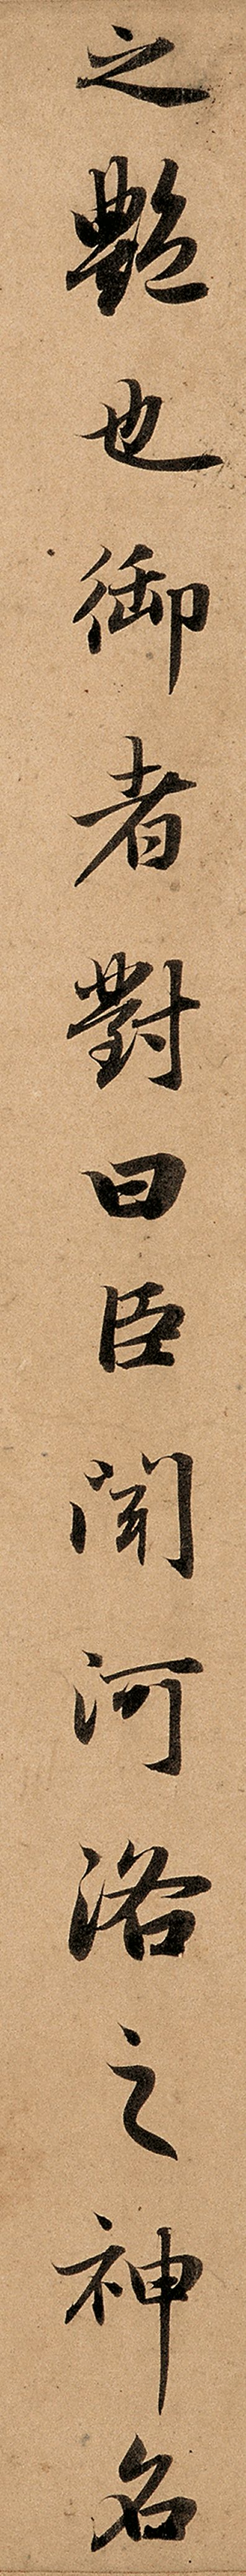 之艷也御者對曰臣聞河洛之神名